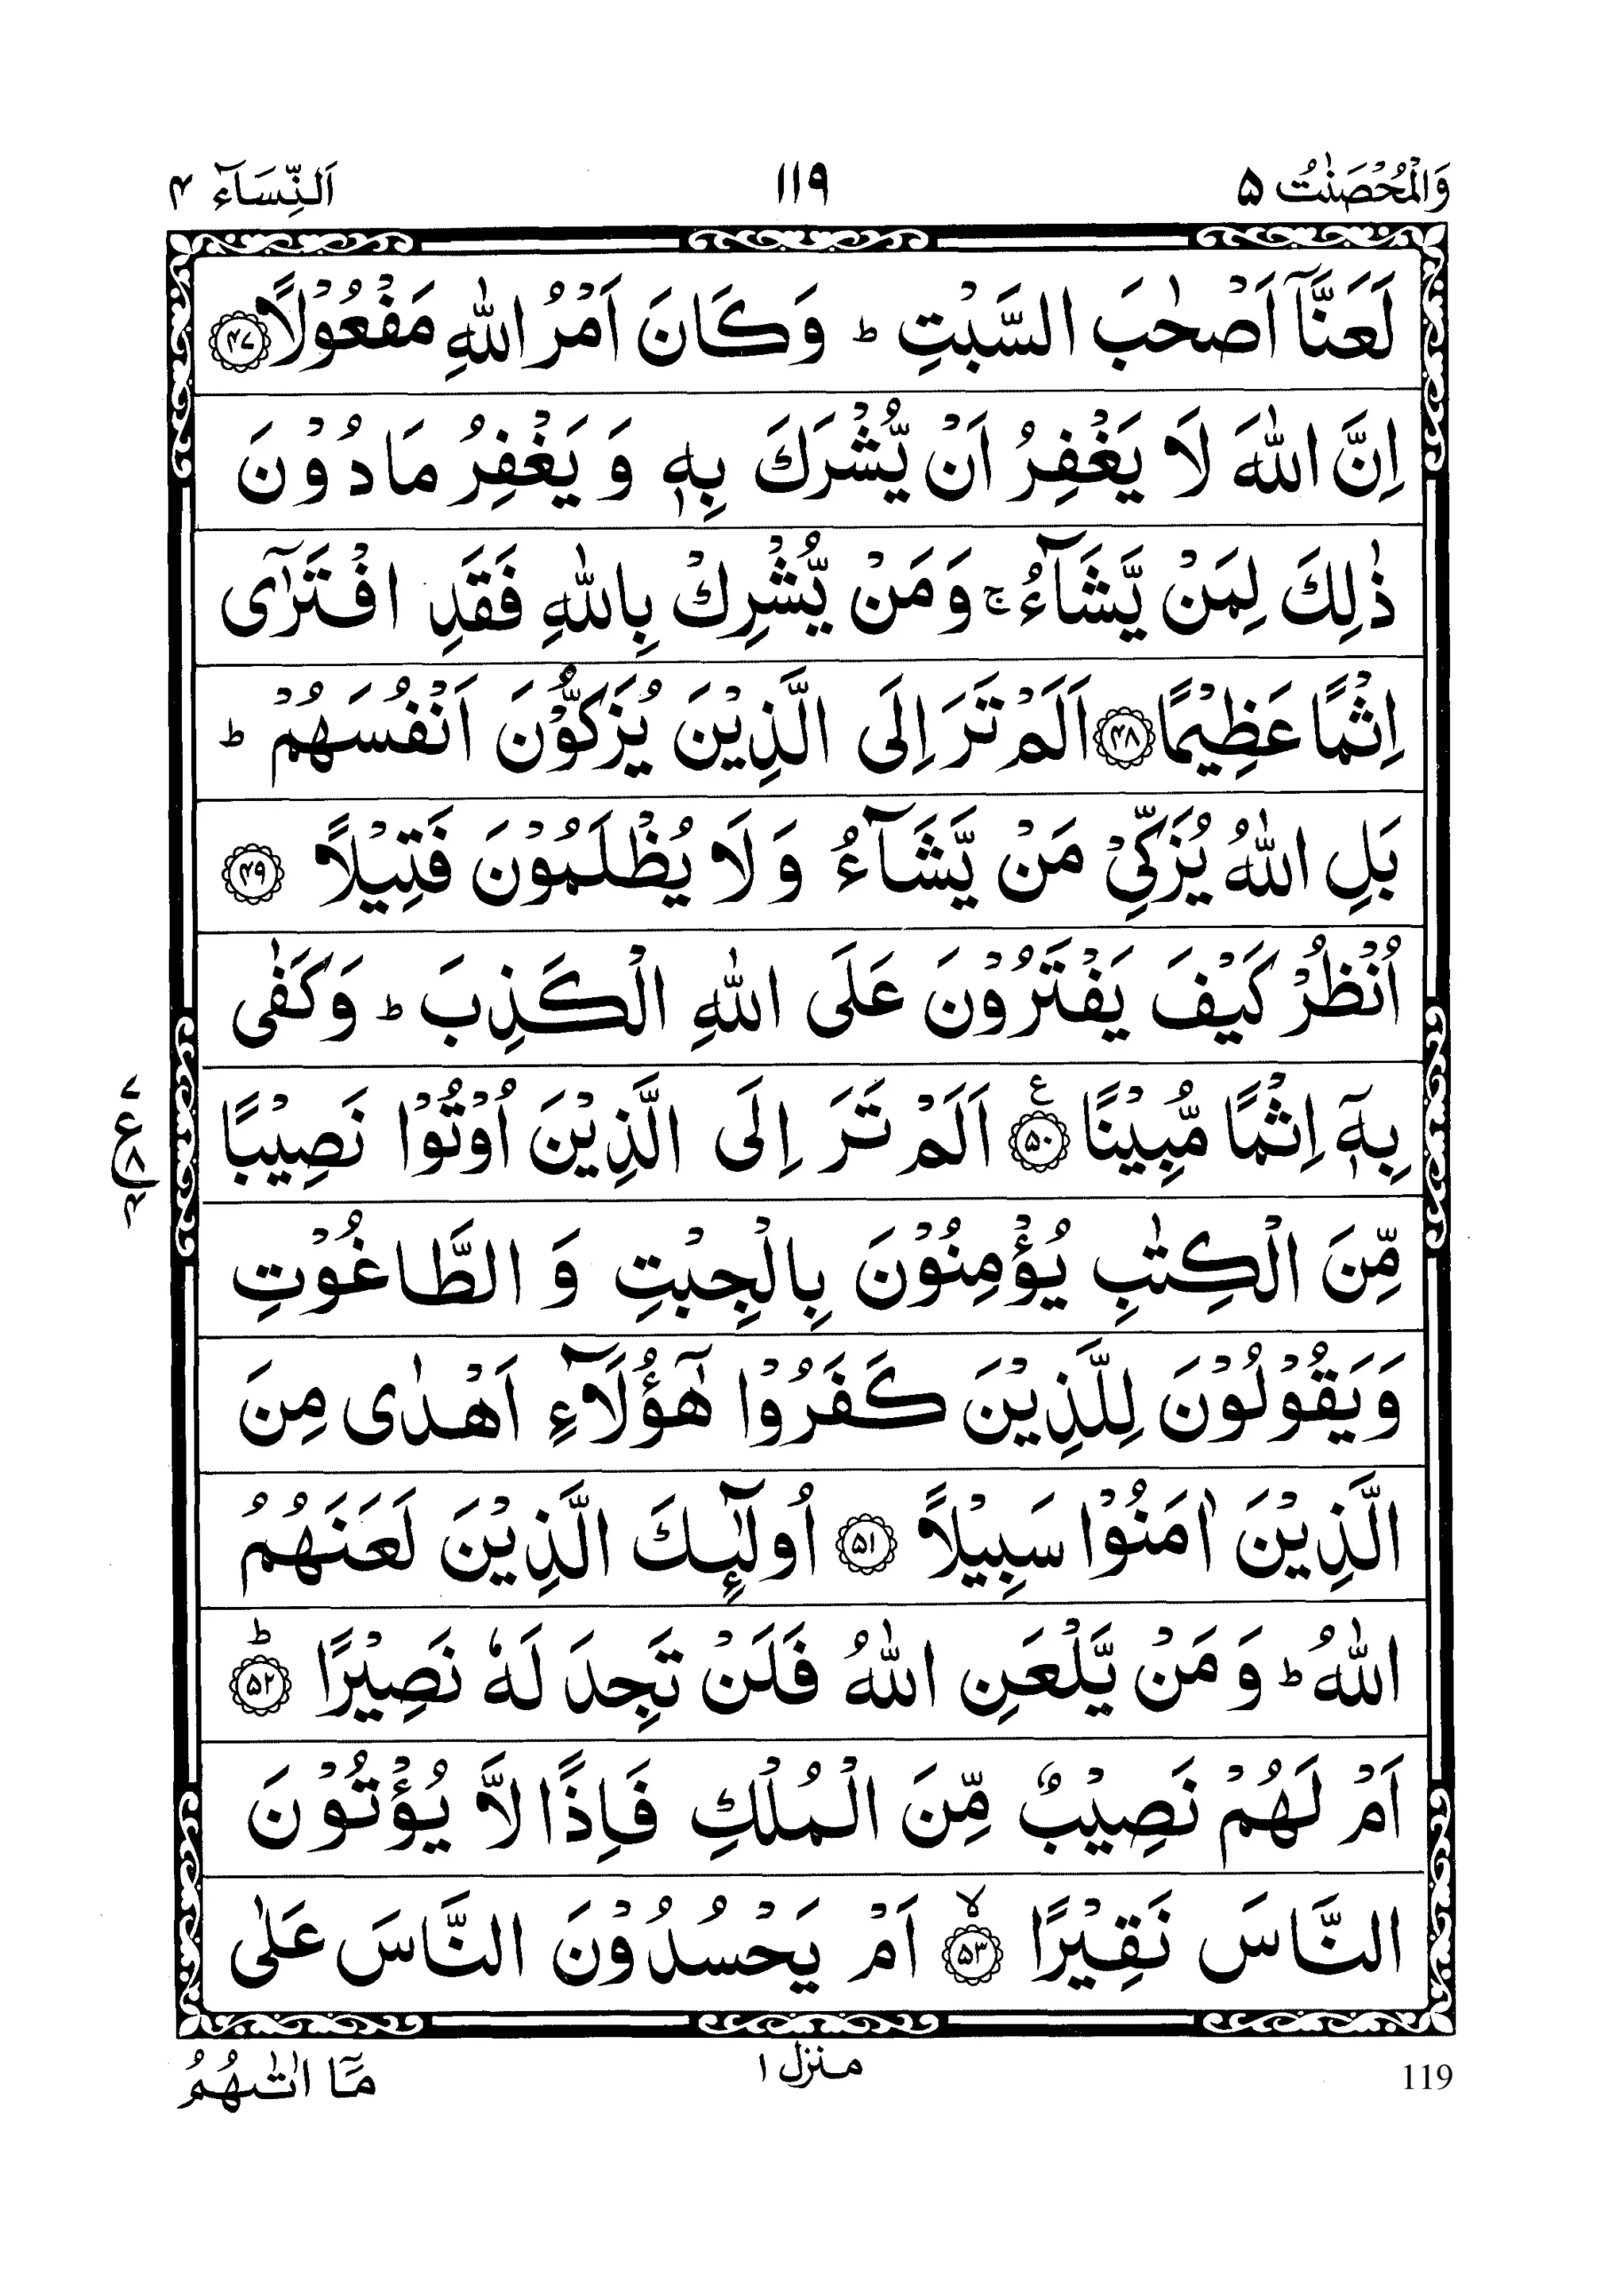 وَالْمُحْصَنٰتُ ۵ ۱۱۹ اَلنِّسَآء ۴
لَعَنَّاۤ اَصْحٰبَ السَّبْتِ ؕ وَكَانَ اَمْرُ اللّٰهِ مَفْعُوْلًا ﴿۴۷﴾
اِنَّ اللّٰهَ لَا يَغْفِرُ اَنْ يُّشْرَكَ بِهٖ وَ يَغْفِرُ مَا دُوْنَ
ذٰلِكَ لِمَنْ يَّشَآءُ ۚ وَمَنْ يُّشْرِكْ بِاللّٰهِ فَقَدِ افْتَرٰۤى
اِثْمًا عَظِيْمًا ﴿۴۸﴾ اَلَمْ تَرَ اِلَى الَّذِيْنَ يُزَكُّوْنَ اَنْفُسَهُمْ ؕ
بَلِ اللّٰهُ يُزَكِّىْ مَنْ يَّشَآءُ وَلَا يُظْلَمُوْنَ فَتِيْلًا ﴿۴۹﴾
اُنْظُرْ كَيْفَ يَفْتَرُوْنَ عَلَى اللّٰهِ الْكَذِبَ ؕ وَكَفٰى
بِهٖۤ اِثْمًا مُّبِيْنًا ﴿۵۰﴾ ع اَلَمْ تَرَ اِلَى الَّذِيْنَ اُوْتُوْا نَصِيْبًا
۷ ع ۸ ۴
مِّنَ الْكِتٰبِ يُؤْمِنُوْنَ بِالْجِبْتِ وَ الطَّاغُوْتِ
وَيَقُوْلُوْنَ لِلَّذِيْنَ كَفَرُوْا هٰۤؤُلَآءِ اَهْدٰى مِنَ
الَّذِيْنَ اٰمَنُوْا سَبِيْلًا ﴿۵۱﴾ اُولٰٓئِكَ الَّذِيْنَ لَعَنَهُمُ
اللّٰهُ ؕ وَمَنْ يَّلْعَنِ اللّٰهُ فَلَنْ تَجِدَ لَهٗ نَصِيْرًا ؕ ﴿۵۲﴾
اَمْ لَهُمْ نَصِيْبٌ مِّنَ الْمُلْكِ فَاِذًا لَّا يُؤْتُوْنَ
النَّاسَ نَقِيْرًا ۙ ﴿۵۳﴾ اَمْ يَحْسُدُوْنَ النَّاسَ عَلٰى
119 منزل ۱ مَاۤ اٰتٰىهُمُ